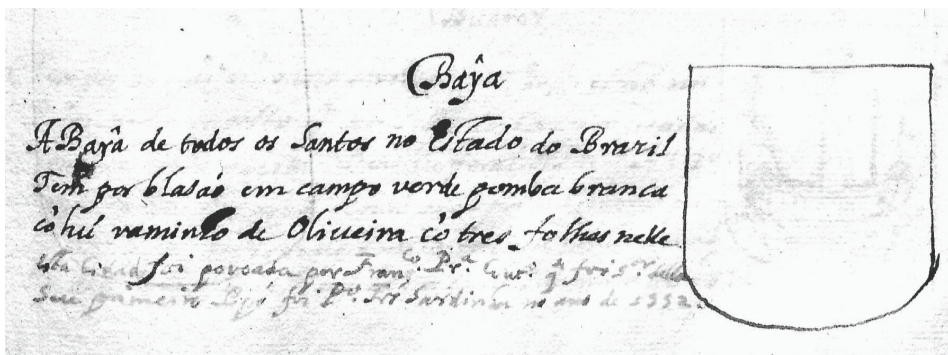 Baŷa
A Baŷa de todos os Santos no Estado do Brazil
Tem por blasão em campo verde pomba branca
cõ hũ raminho de Oliveira cõ tres folhas nelle
foi povoada por Fran.co Pr.a Cout.o q̃
Seu primeiro Bpo foi P.o Frz Sardinha no ano de 1552.